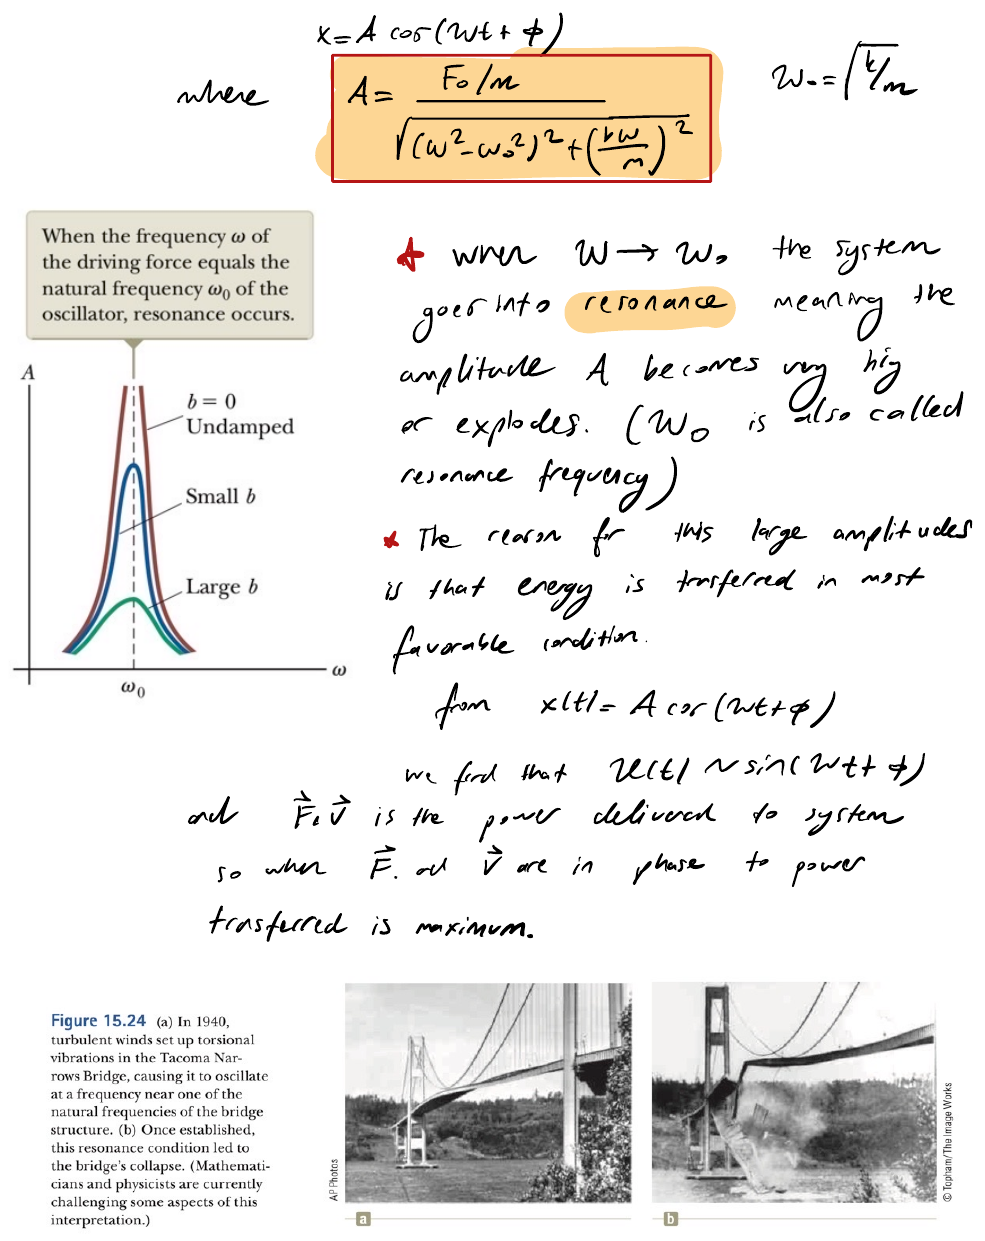 x = A cos(ωt + φ)
where A = F₀/m / √((ω²-ω₀²)² + (bω/m)²) ω₀ = √k/m
When the frequency ω of
the driving force equals the
natural frequency ω₀ of the
oscillator, resonance occurs.
A
b = 0
Undamped
Small b
Large b
ω
ω₀
* when ω → ω₀ the system
goes into resonance meaning the
amplitude A becomes very hig
or explodes. (ω₀ is also called
resonance frequency)
* The reason for this large amplitudes
is that energy is trasferred in most
favorable condition.
from x(t) = A cos(ωt+φ)
we find that v(t) ~ sin(ωt+φ)
and F⃗.v⃗ is the power delivered to system
so when F⃗. and v⃗ are in phase to power
trasferred is maximum.
Figure 15.24 (a) In 1940,
turbulent winds set up torsional
vibrations in the Tacoma Nar-
rows Bridge, causing it to oscillate
at a frequency near one of the
natural frequencies of the bridge
structure. (b) Once established,
this resonance condition led to
the bridge's collapse. (Mathemati-
cians and physicists are currently
challenging some aspects of this
interpretation.)
AP Photos
a
© Topham/The Image Works
b